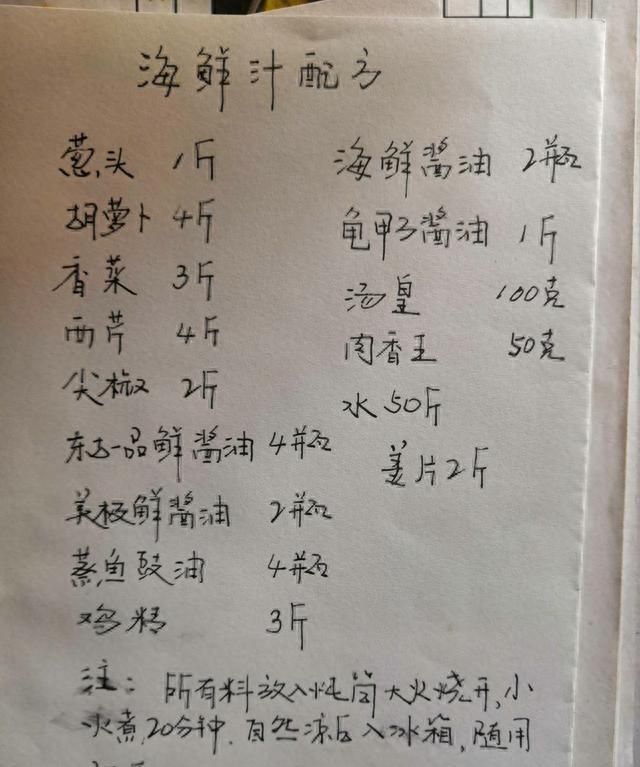 海鲜汁配方
葱头 1斤
胡萝卜 4斤
香菜 3斤
西芹 4斤
尖椒 2斤
东古一品鲜酱油 4瓶
美极鲜酱油 2瓶
蒸鱼豉油 4瓶
鸡精 3斤
海鲜酱油 2瓶
龟甲子酱油 1斤
汤皇 100克
肉香王 50克
水 50斤
姜片2斤
注：所有料放入炖筒大火烧开,小
火煮20分钟.自然凉后入冰箱,随用